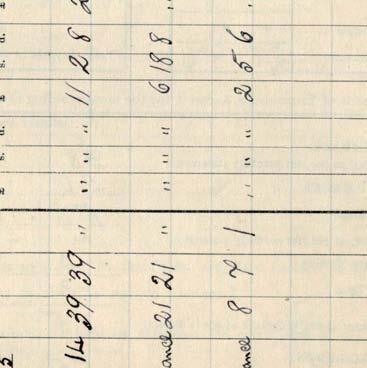 £ s. d. £ s. d.
14 39 39 " " " " 11 2 8
ance 21 21 " " " " 6 18 8
ance 8 7 1 " " " 2 5 6